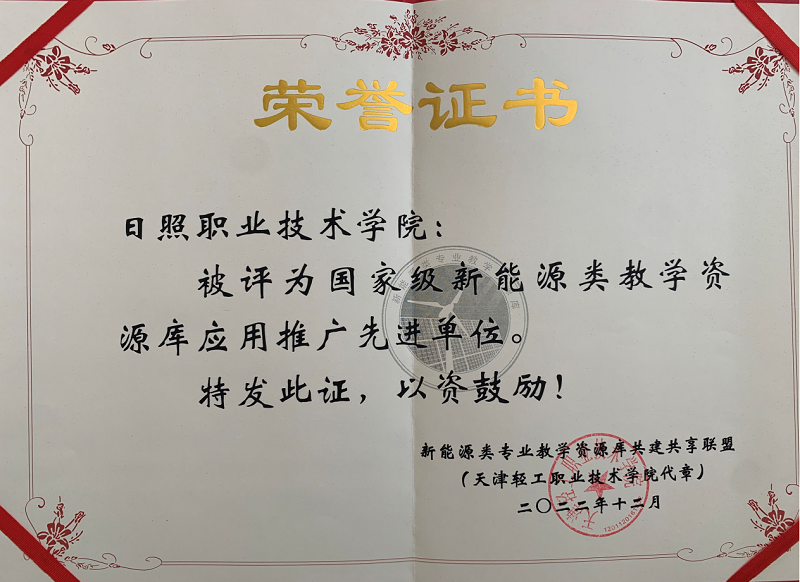 荣誉证书
日照职业技术学院：
被评为国家级新能源类教学资
源库应用推广先进单位。
特发此证，以资鼓励！
新能源类专业教学资源库共建共享联盟
（天津轻工职业技术学院代章）
二〇二二年十二月